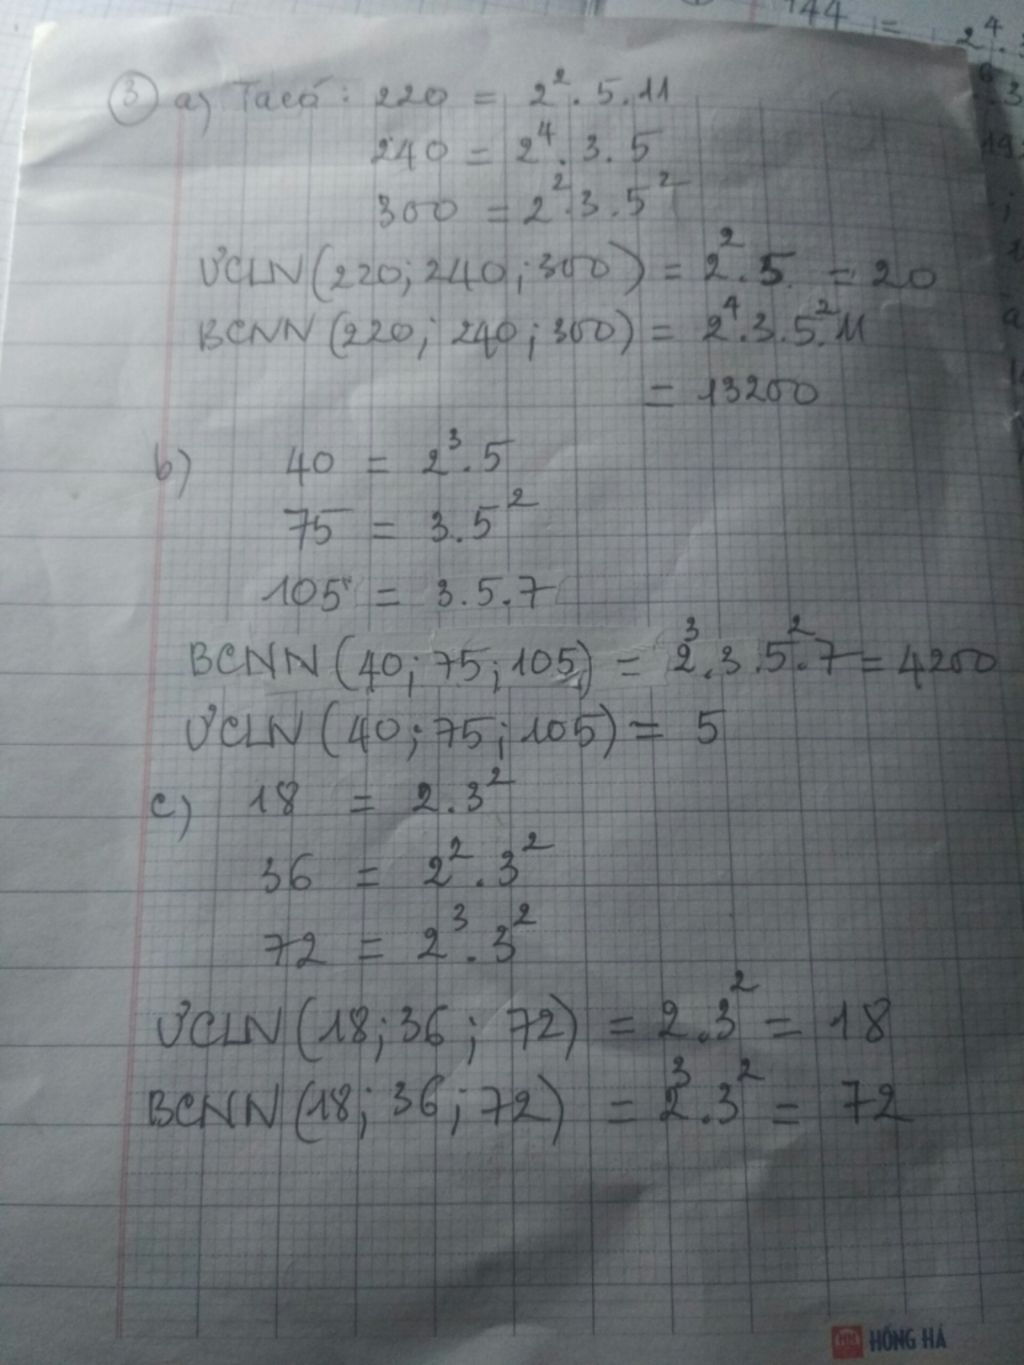 144 = 2⁴.3
③ a) Ta có: 220 = 2².5.11
240 = 2⁴.3.5
300 = 2².3.5²
ƯCLN(220;240;300) = 2².5 = 20
BCNN(220;240;300) = 2⁴.3.5².11
= 13200
b) 40 = 2³.5
75 = 3.5²
105 = 3.5.7
BCNN(40;75;105) = 2³.3.5².7 = 4200
ƯCLN(40;75;105) = 5
c) 18 = 2.3²
36 = 2².3²
72 = 2³.3²
ƯCLN(18;36;72) = 2.3² = 18
BCNN(18;36;72) = 2³.3² = 72
HH HỒNG HÀ